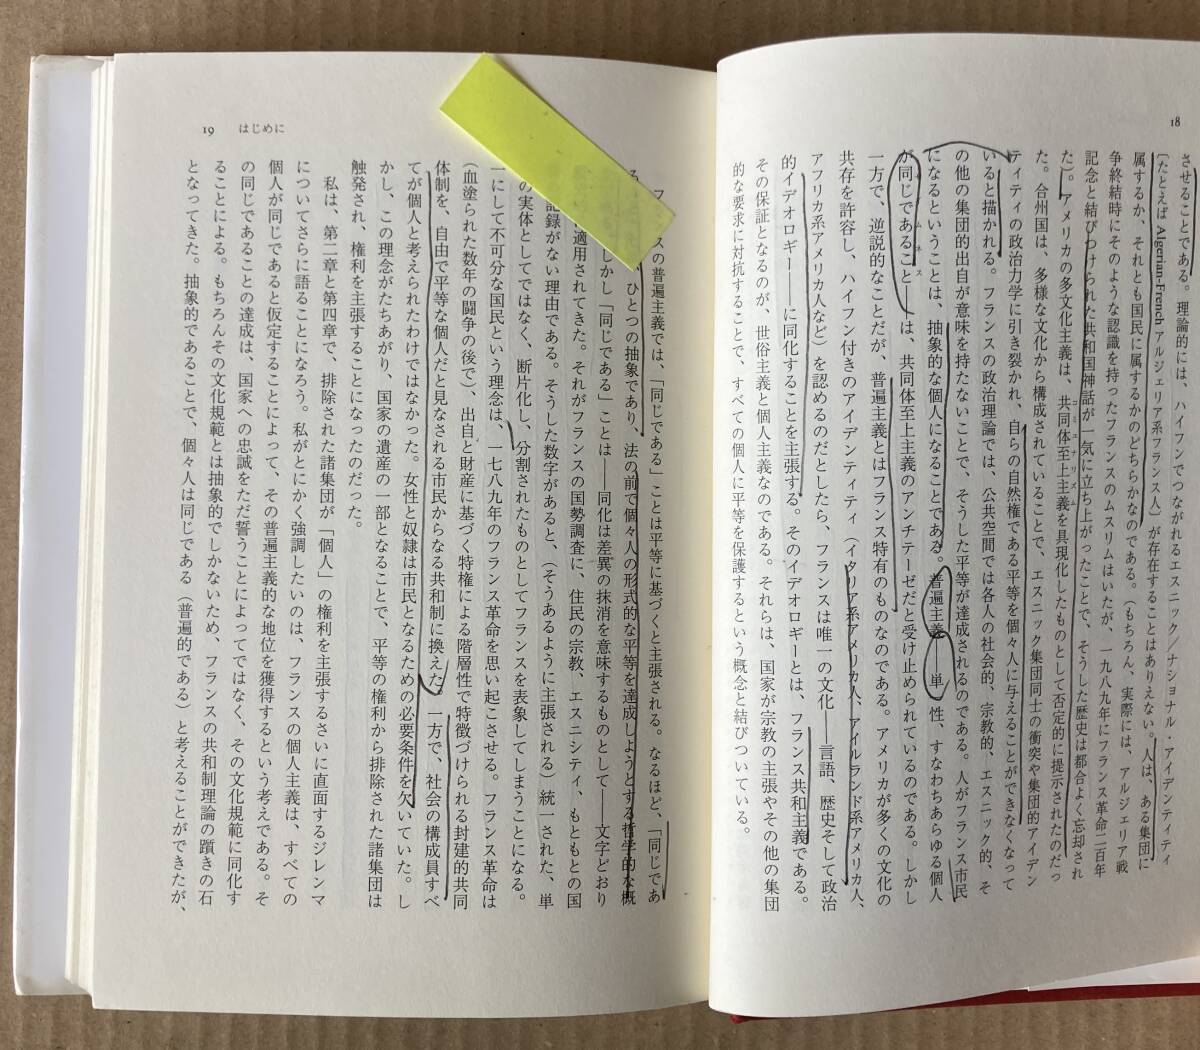 18
させることである。理論的には、ハイフンでつながれるエスニック／ナショナル・アイデンティティ
（たとえば Algerian-French アルジェリア系フランス人）が存在することはありえない。人は、ある集団に
属するか、それとも国民に属するかのどちらかなのである。（もちろん、実際には、アルジェリア戦
争終結時にそのような認識を持ったフランスのムスリムはいたが、一九八九年にフランス革命二百年
記念と結びつけられた共和国神話が一気に立ち上がったことで、そうした歴史は都合よく忘却され
た）。アメリカの多文化主義は、共同体至上主義を具現化したものとして否定的に提示されたのだっ
コミュナリズム
た。合州国は、多様な文化から構成されていることで、エスニック集団同士の衝突や集団的アイデン
ティティの政治力学に引き裂かれ、自らの自然権である平等を個々人に与えることができなくなって
いると描かれる。フランスの政治理論では、公共空間では各人の社会的、宗教的、エスニック的、そ
の他の集団的出自が意味を持たないことで、そうした平等が達成されるのである。人がフランス市民
になるということは、抽象的な個人になることである。普遍主義――単一性、すなわちあらゆる個人
が同じであること――は、共同体至上主義のアンチテーゼだと受け止められているのである。しかし
セイムネス
一方で、逆説的なことだが、普遍主義とはフランス特有のものなのである。アメリカが多くの文化の
共存を許容し、ハイフン付きのアイデンティティ（イタリア系アメリカ人、アイルランド系アメリカ人、
アフリカ系アメリカ人など）を認めるのだとしたら、フランスは唯一の文化――言語、歴史そして政治
的イデオロギー――に同化することを主張する。そのイデオロギーとは、フランス共和主義である。
その保証となるのが、世俗主義と個人主義なのである。それらは、国家が宗教の主張やその他の集団
的な要求に対抗することで、すべての個人に平等を保護するという概念と結びついている。
19 はじめに
フ スの普遍主義では、「同じである」ことは平等に基づくと主張される。なるほど、「同じであ
る 、ひとつの抽象であり、法の前で個々人の形式的な平等を達成しようとする哲学的な概
しかし「同じである」ことは――同化は差異の抹消を意味するものとして――文字どおり
に適用されてきた。それがフランスの国勢調査に、住民の宗教、エスニシティ、もともとの国
記録がない理由である。そうした数字があると、（そうあるように主張される）統一された、単
の実体としてではなく、断片化し、分割されたものとしてフランスを表象してしまうことになる。
一にして不可分な国民という理念は、一七八九年のフランス革命を思い起こさせる。フランス革命は
（血塗られた数年の闘争の後で）、出自と財産に基づく特権による階層性で特徴づけられる封建的共同
体制を、自由で平等な個人だと見なされる市民からなる共和制に換えた。一方で、社会の構成員すべ
てが個人と考えられたわけではなかった。女性と奴隷は市民となるための必要条件を欠いていた。し
かし、この理念がたちあがり、国家の遺産の一部となることで、平等の権利から排除された諸集団は
触発され、権利を主張することになったのだった。
私は、第二章と第四章で、排除された諸集団が「個人」の権利を主張するさいに直面するジレンマ
についてさらに語ることになろう。私がとにかく強調したいのは、フランスの個人主義は、すべての
個人が同じであると仮定することによって、その普遍主義的な地位を獲得するという考えである。そ
の同じであることの達成は、国家への忠誠をただ誓うことによってではなく、その文化規範に同化す
ることによる。もちろんその文化規範とは抽象的でしかないため、フランスの共和制理論の躓きの石
となってきた。抽象的であることで、個々人は同じである（普遍的である）と考えることができたが、